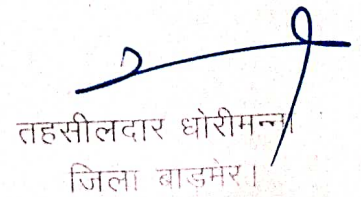 तहसीलदार धोरीमन्ना
जिला बाडमेर।